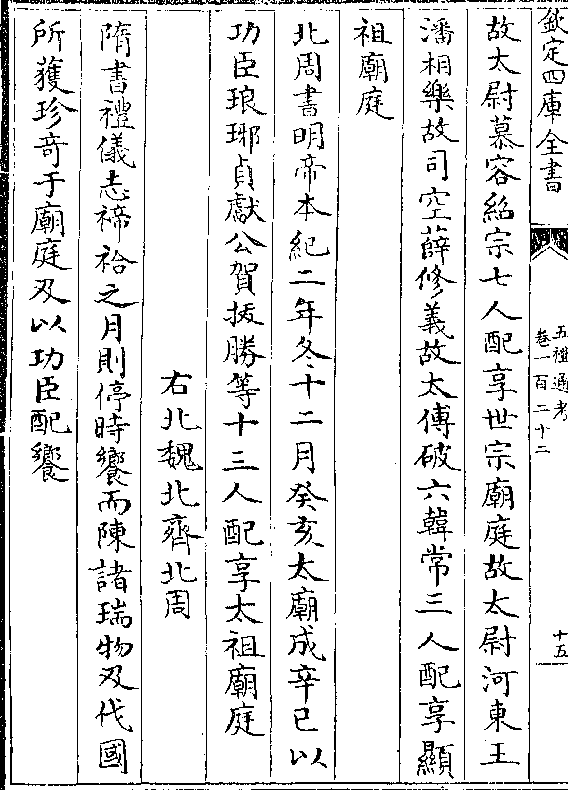 欽定四庫全書
五禮通考
卷一百二十二
十五
故太尉慕容紹宗七人配享世宗廟庭故太尉河東王
潘相樂故司空薛修義故太傅破六韓常三人配享顯
祖廟庭
北周書明帝本紀二年冬十二月癸亥太廟成辛巳以
功臣琅琊貞獻公賀拔勝等十三人配享太祖廟庭
右北魏北齊北周
隋書禮儀志禘祫之月則停時饗而陳諸瑞物及代國
所獲珍奇于廟庭及以功臣配饗